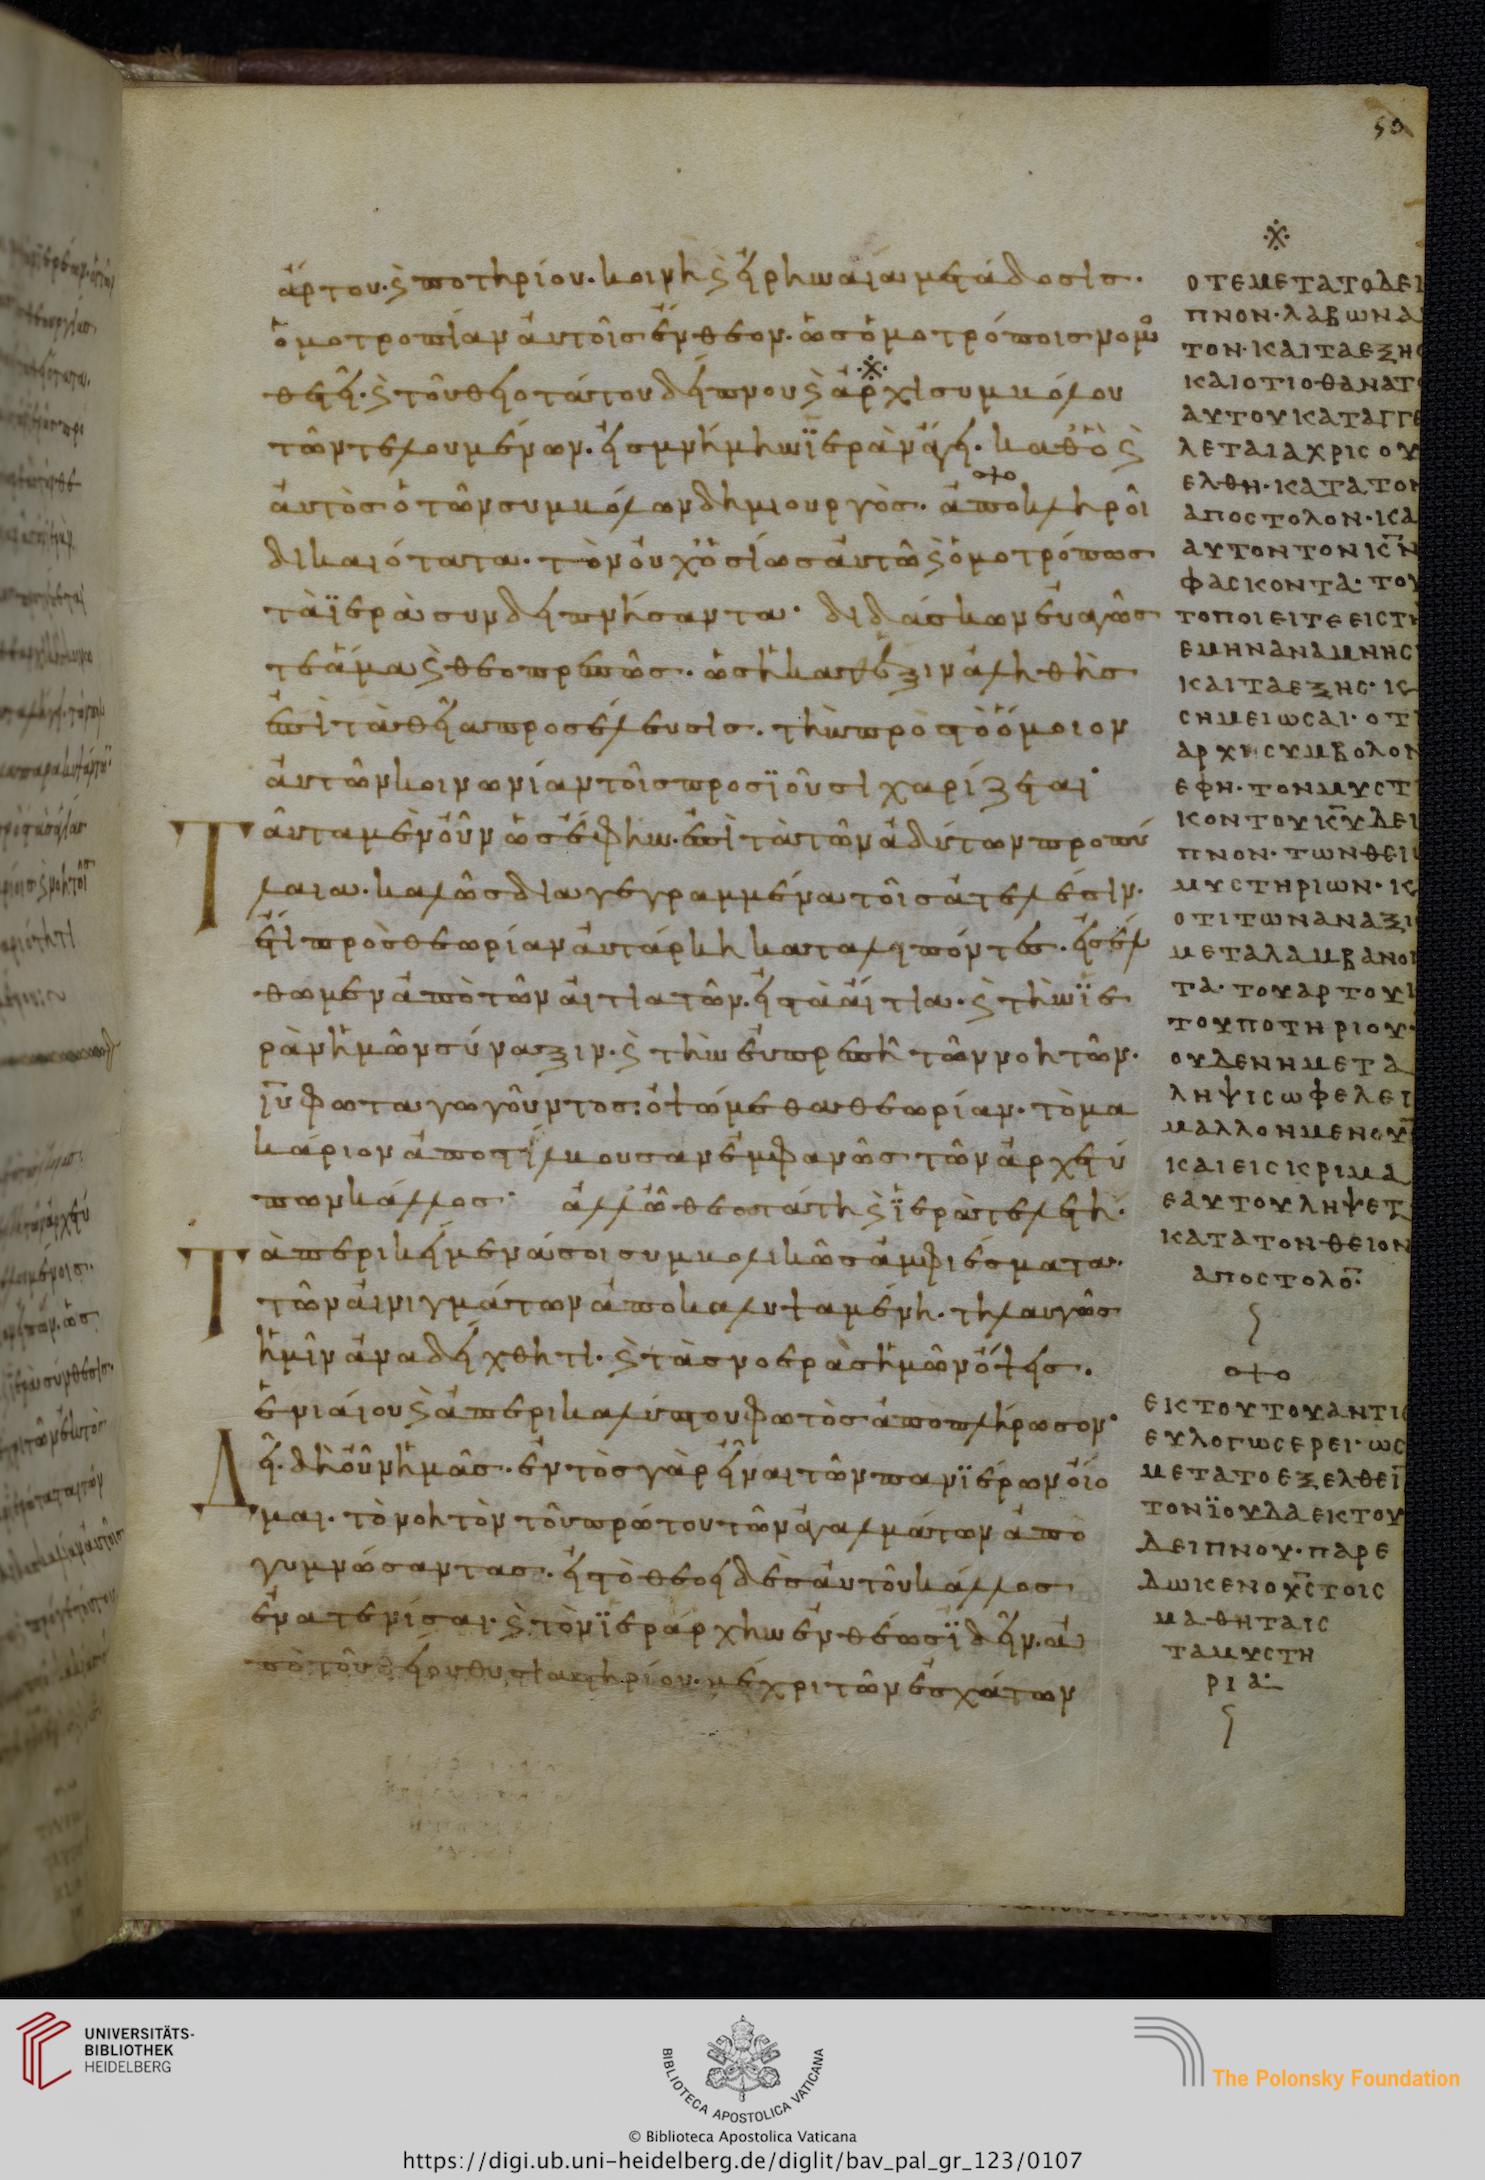 ἄρτου· ϛ̀ ποτηρίου· κοινὴ ϛ̀ εἰρηναία μετάδοσις·
ὁμοτροπίαν αὐτοῖς ἔνθεον· ὡς ὁμοτρόποις νομο
θετεῖ· ϛ̀ τοῦ θειοτάτου δείπνου ϛ̀ ἀρχισυμβόλου
τῶν τελουμένων· εἰς μνήμην ϊερὰν ἄγει· καθὸ ϛ̀
αὐτὸς ὁ τῶν συμβόλων δημιουργὸς· ἀποκληροῖ
δικαιότατα· τὸν οὐχ ὁσίως αὐτῶ ϛ̀ ὁμοτρόπως
τὰ ϊερὰ συνδειπνήσαντα· διδάσκων εὐαγῶς
τε ἅμα ϛ̀ θεοπρεπῶς· ὡς ἡ κατ' ἕξιν ἀληθὴς
ἐπὶ τὰ θεῖα προσέλευσις· τὴν πρὸς τὸ ὅμοιον
αὐτῶν κοινωνίαν τοῖς προσϊοῦσι χαρίζεται·
Ταῦτα μὲν οὖν ὡς ἔφην· ἐπὶ τὰ τῶν ἀδύτων προπύ
λαια· καλῶς διαγεγραμμένα τοῖς ἀτελέσιν·
ἔτι πρὸς θεωρίαν αὐτάρκη καταλιπόντες· εἰσέλ
θωμεν ἀπὸ τῶν αἰτιατῶν· εἰς τὰ αἴτια· ϛ̀ τὴν ϊε
ρὰν ἡμῶν σύναξιν· ϛ̀ τὴν εὐπρεπῆ τῶν νοητῶν·
ιῡ φωταγωγοῦντος· ὀψόμεθα θεωρίαν· τὸ μα
κάριον ἀποστίλβουσαν ἐμφανῶς τῶν ἀρχετύ
πων κάλλος· ἀλλ' ὦ θειοτάτη ϛ̀ ϊερὰ τελετή·
Τὰ περικείμενά σοι συμβολικῶς ἀμφιέσματα·
τῶν αἰνιγμάτων ἀποκαλυψαμένη· τηλαυγῶς
ἡμῖν ἀναδείχθητι· ϛ̀ τὰς νοερὰς ἡμῶν ὄψεις·
ἑνιαίου ϛ̀ ἀπερικαλύπτου φωτὸς ἀποπλήρωσον·
Δεῖ· δὴ οὖν ἡμᾶς· ἐντὸς γὰρ εἶναι τῶν πανϊέρων οἴο
μαι· τὸ νοητὸν τοῦ πρώτου τῶν ἀγαλμάτων ἀπο
γυμνώσαντας· εἰς τὸ θεοειδὲς αὐτοῦ κάλλος
ἐνατενίσαι· ϛ̀ τὸν ϊεράρχην ἐνθέως ϊδεῖν· ἀ
πὸ τοῦ θείου θυσιαστηρίου· μέχρι τῶν ἐσχάτων
50
※
ΟΤΕ ΜΕΤΑ ΤΟ ΔΕΙ
ΠΝΟΝ· ΛΑΒΩΝ Α
ΤΟΝ· ΚΑΙ ΤΑ ΕΞΗΣ
ΚΑΙ ΟΤΙ Ο ΘΑΝΑΤ
ΑΥΤΟΥ ΚΑΤΑΓΓΕ
ΛΕΤΑΙ ΑΧΡΙΣ ΟΥ
ΕΛΘΗ· ΚΑΤΑ ΤΟΝ
ΑΠΟΣΤΟΛΟΝ· ΚΑ
ΑΥΤΟΝ ΤΟΝ Κ̅Ν̅
ΦΑΣΚΟΝΤΑ· ΤΟΥ
ΤΟ ΠΟΙΕΙΤΕ ΕΙΣ ΤΗ
ΕΜΗΝ ΑΝΑΜΝΗΣ
ΚΑΙ ΤΑ ΕΞΗΣ· Κ
ΣΗΜΕΙΩΣΑΙ· ΟΤΙ
ΑΡΧΗΣΥΜΒΟΛΟΝ
ΕΦΗ· ΤΟΝ ΜΥΣΤΙ
ΚΟΝ ΤΟΥ Κ̅Υ̅ ΔΕΙ
ΠΝΟΝ· ΤΩΝ ΘΕΙΩ
ΜΥΣΤΗΡΙΩΝ· Κ
ΟΤΙ ΤΩΝ ΑΝΑΞΙ
ΜΕΤΑΛΑΜΒΑΝΟΝ
ΤΑ· ΤΟΥ ΑΡΤΟΥ Κ
ΤΟΥ ΠΟΤΗΡΙΟΥ·
ΟΥΔΕΝ Η ΜΕΤΑ
ΛΗΨΙΣ ΩΦΕΛΕΙ
ΜΑΛΛΟΝ ΜΕΝΟΥ̅
ΚΑΙ ΕΙΣ ΚΡΙΜΑ
ΕΑΥΤΟΥ ΛΗΨΕΤ
ΚΑΤΑ ΤΟΝ ΘΕΙΟΝ
ΑΠΟΣΤΟΛΟ̅·
ΕΚ ΤΟΥΤΟΥ ΑΝΤΙ
ΕΥΛΟΓΩΣ ΕΡΕΙ· ΩΣ
ΜΕΤΑ ΤΟ ΕΞΕΛΘΕΙ̅
ΤΟΝ ΪΟΥΔΑ ΕΚ ΤΟΥ
ΔΕΙΠΝΟΥ· ΠΑΡΕ
ΔΩΚΕΝ Ο Χ̅Σ̅ ΤΟΙΣ
ΜΑΘΗΤΑΙΣ
ΤΑ ΜΥΣΤΗ
ΡΙΑ·
UNIVERSITÄTS-
BIBLIOTHEK
HEIDELBERG
BIBLIOTECA APOSTOLICA VATICANA
The Polonsky Foundation
© Biblioteca Apostolica Vaticana
https://digi.ub.uni-heidelberg.de/diglit/bav_pal_gr_123/0107